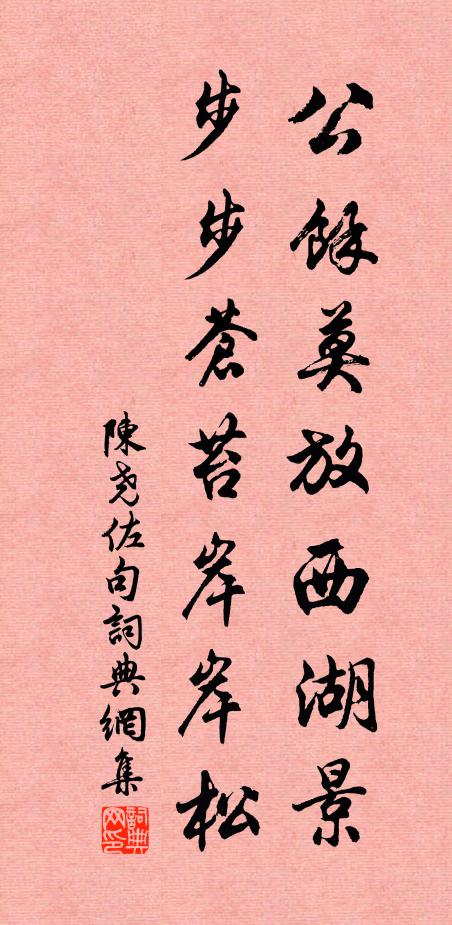 公餘莫放西湖景
步步蒼苔岸岸松
陳尧佐句詞典網集
詞典网印